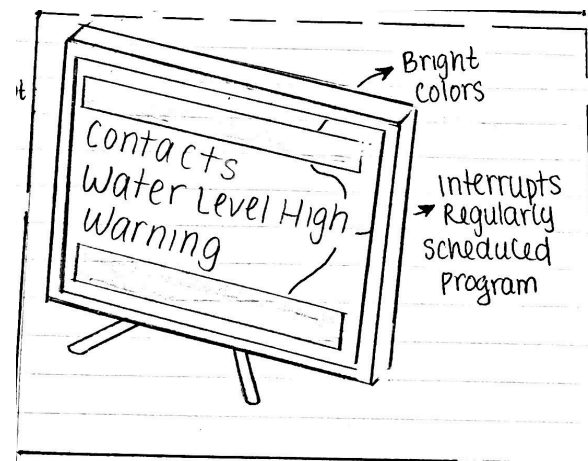 Contacts
Water Level High
Warning
Bright
Colors
Interrupts
Regularly
Scheduled
Program